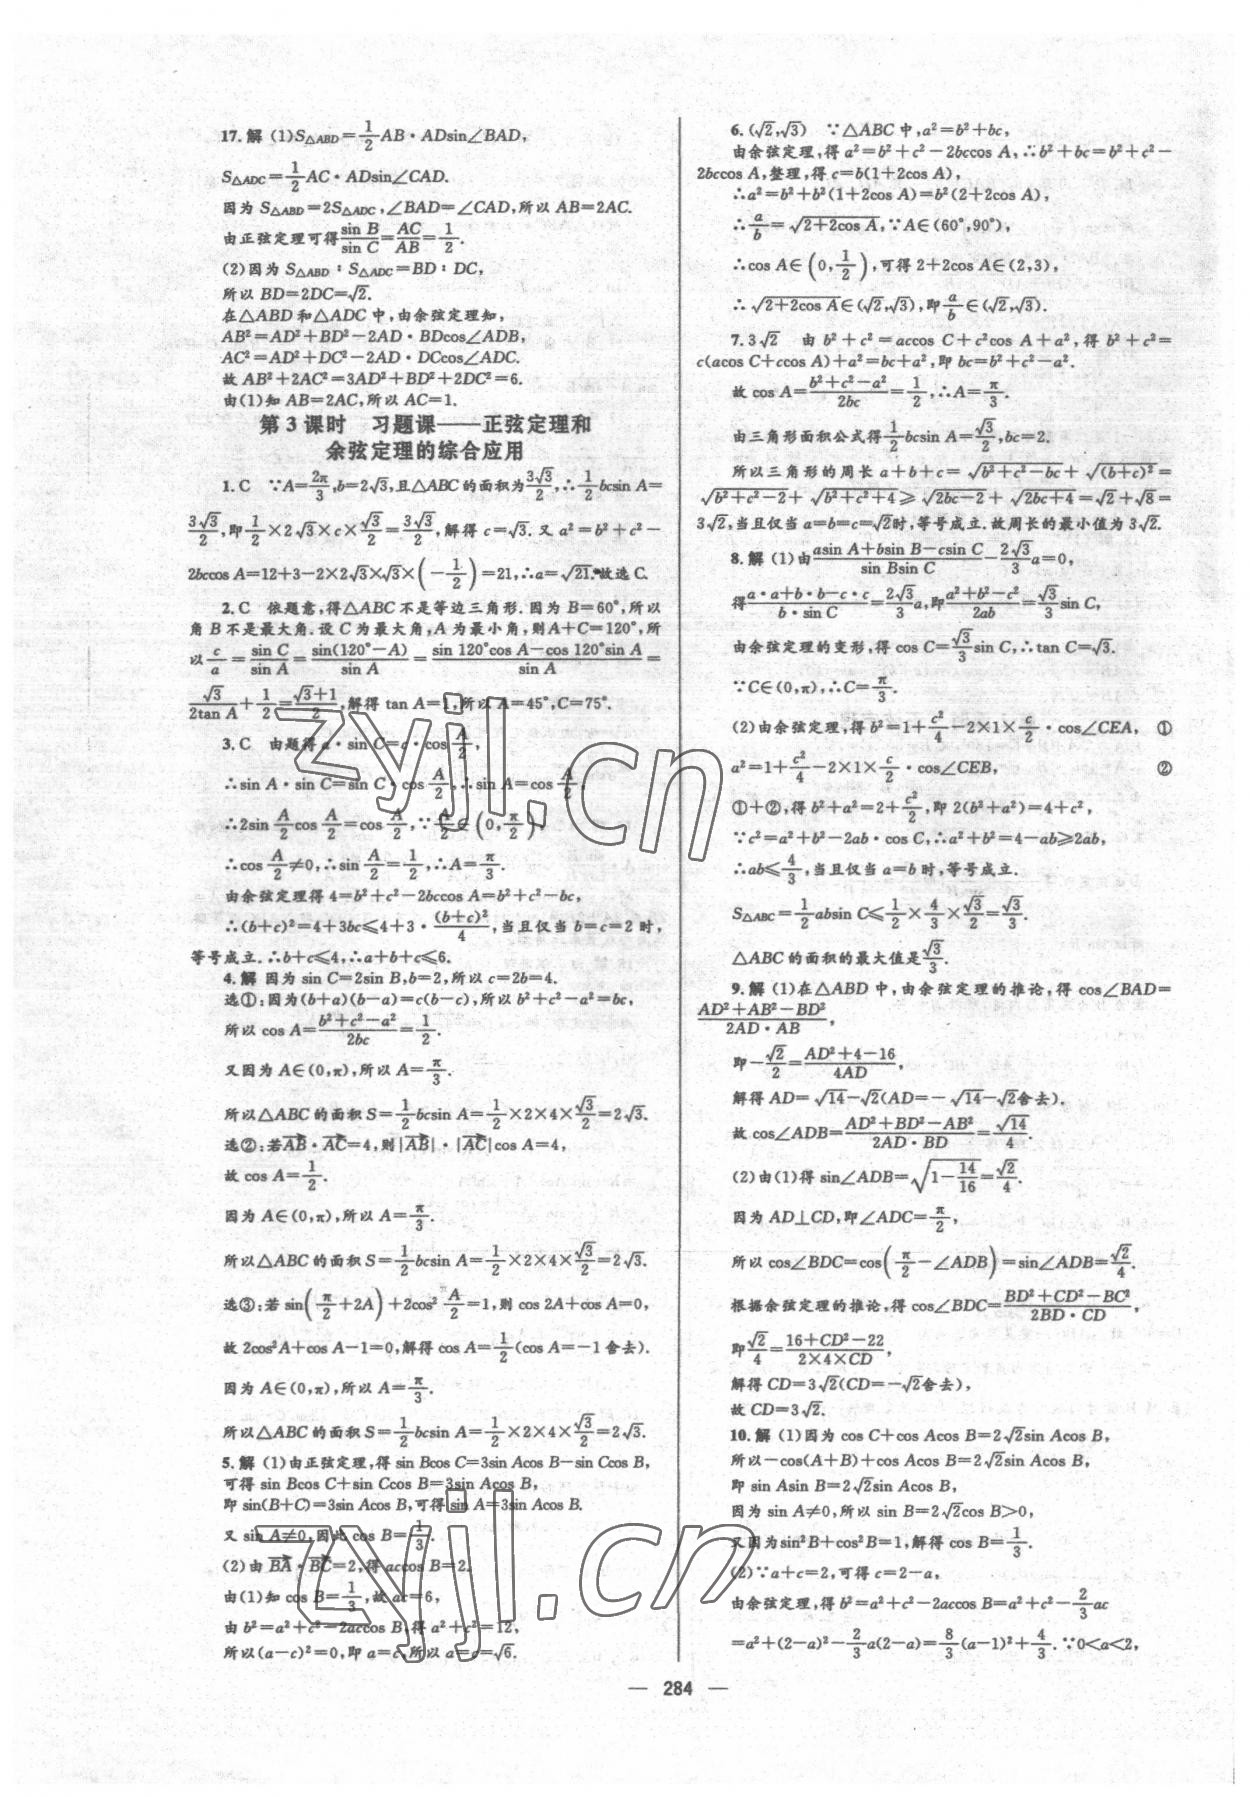 17.解 (1)S△ABD=1/2 AB·ADsin∠BAD,
S△ADC=1/2 AC·ADsin∠CAD.
因为 S△ABD=2S△ADC,∠BAD=∠CAD,所以 AB=2AC.
由正弦定理可得 sin B/sin C=AC/AB=1/2.
(2)因为 S△ABD∶S△ADC=BD∶DC,
所以 BD=2DC=√2.
在△ABD 和△ADC 中,由余弦定理知,
AB²=AD²+BD²-2AD·BDcos∠ADB,
AC²=AD²+DC²-2AD·DCcos∠ADC.
故 AB²+2AC²=3AD²+BD²+2DC²=6.
由(1)知 AB=2AC,所以 AC=1.
第 3 课时 习题课——正弦定理和
余弦定理的综合应用
1.C ∵A=2π/3,b=2√3,且△ABC 的面积为3√3/2,∴1/2 bcsin A=
3√3/2,即1/2×2√3×c×√3/2=3√3/2,解得 c=√3.又 a²=b²+c²-
2bccos A=12+3-2×2√3×√3×(-1/2)=21,∴a=√21.故选 C.
2.C 依题意,得△ABC 不是等边三角形.因为 B=60°,所以
角 B 不是最大角.设 C 为最大角,A 为最小角,则A+C=120°,所
以 c/a=sin C/sin A=sin(120°-A)/sin A=(sin 120°cos A-cos 120°sin A)/sin A=
√3/(2tan A)+1/2=(√3+1)/2,解得 tan A=1,所以 A=45°,C=75°.
3.C 由题得 a·sin C=c·cos A/2,
∴sin A·sin C=sin C·cos A/2,∴sin A=cos A/2,
∴2sin A/2 cos A/2=cos A/2,∵A/2∈(0,π/2),
∴cos A/2≠0,∴sin A/2=1/2,∴A=π/3.
由余弦定理得 4=b²+c²-2bccos A=b²+c²-bc,
∴(b+c)²=4+3bc≤4+3·(b+c)²/4,当且仅当 b=c=2 时,
等号成立.∴b+c≤4,∴a+b+c≤6.
4.解 因为 sin C=2sin B,b=2,所以 c=2b=4.
选①:因为(b+a)(b-a)=c(b-c),所以 b²+c²-a²=bc,
所以 cos A=(b²+c²-a²)/2bc=1/2.
又因为 A∈(0,π),所以 A=π/3.
所以△ABC 的面积 S=1/2 bcsin A=1/2×2×4×√3/2=2√3.
选②:若AB·AC=4,则|AB|·|AC|cos A=4,
故 cos A=1/2.
因为 A∈(0,π),所以 A=π/3.
所以△ABC 的面积 S=1/2 bcsin A=1/2×2×4×√3/2=2√3.
选③:若 sin(π/2+2A)+2cos² A/2=1,则 cos 2A+cos A=0,
故 2cos²A+cos A-1=0,解得 cos A=1/2(cos A=-1 舍去).
因为 A∈(0,π),所以 A=π/3.
所以△ABC 的面积 S=1/2 bcsin A=1/2×2×4×√3/2=2√3.
5.解 (1)由正弦定理,得 sin Bcos C=3sin Acos B-sin Ccos B,
可得 sin Bcos C+sin Ccos B=3sin Acos B,
即 sin(B+C)=3sin Acos B,可得 sin A=3sin Acos B.
又 sin A≠0,因此 cos B=1/3.
(2)由 BA·BC=2,得 accos B=2,
由(1)知 cos B=1/3,故 ac=6,
由 b²=a²+c²-2accos B,得 a²+c²=12,
所以(a-c)²=0,即 a=c,所以 a=c=√6.
6.(√2,√3) ∵△ABC 中,a²=b²+bc,
由余弦定理,得 a²=b²+c²-2bccos A,∴b²+bc=b²+c²-
2bccos A,整理,得 c=b(1+2cos A),
∴a²=b²+b²(1+2cos A)=b²(2+2cos A),
∴a/b=√(2+2cos A),∵A∈(60°,90°),
∴cos A∈(0,1/2),可得 2+2cos A∈(2,3),
∴√(2+2cos A)∈(√2,√3),即a/b∈(√2,√3).
7.3√2 由 b²+c²=accos C+c²cos A+a²,得 b²+c²=
c(acos C+ccos A)+a²=bc+a²,即 bc=b²+c²-a².
故 cos A=(b²+c²-a²)/2bc=1/2,∴A=π/3.
由三角形面积公式得1/2 bcsin A=√3/2,bc=2.
所以三角形的周长 a+b+c=√(b²+c²-bc)+√((b+c)²)=
√(b²+c²-2)+√(b²+c²+4)≥√(2bc-2)+√(2bc+4)=√2+√8=
3√2,当且仅当 a=b=c=√2时,等号成立.故周长的最小值为 3√2.
8.解 (1)由(asin A+bsin B-csin C)/(sin Bsin C)-2√3/3 a=0,
得(a·a+b·b-c·c)/(b·sin C)=2√3/3 a,即(a²+b²-c²)/2ab=√3/3 sin C,
由余弦定理的变形,得 cos C=√3/3 sin C,∴tan C=√3.
∵C∈(0,π),∴C=π/3.
(2)由余弦定理,得 b²=1+c²/4-2×1×c/2·cos∠CEA, ①
a²=1+c²/4-2×1×c/2·cos∠CEB, ②
①+②,得 b²+a²=2+c²/2,即 2(b²+a²)=4+c²,
∵c²=a²+b²-2ab·cos C,∴a²+b²=4-ab≥2ab,
∴ab≤4/3,当且仅当 a=b 时,等号成立.
S△ABC=1/2 absin C≤1/2×4/3×√3/2=√3/3.
△ABC 的面积的最大值是√3/3.
9.解 (1)在△ABD 中,由余弦定理的推论,得 cos∠BAD=
(AD²+AB²-BD²)/(2AD·AB),
即-√2/2=(AD²+4-16)/4AD,
解得 AD=√14-√2(AD=-√14-√2舍去).
故 cos∠ADB=(AD²+BD²-AB²)/(2AD·BD)=√14/4.
(2)由(1)得 sin∠ADB=√(1-14/16)=√2/4.
因为 AD⊥CD,即∠ADC=π/2,
所以 cos∠BDC=cos(π/2-∠ADB)=sin∠ADB=√2/4.
根据余弦定理的推论,得 cos∠BDC=(BD²+CD²-BC²)/(2BD·CD),
即√2/4=(16+CD²-22)/(2×4×CD),
解得 CD=3√2(CD=-√2舍去),
故 CD=3√2.
10.解 (1)因为 cos C+cos Acos B=2√2sin Acos B,
所以-cos(A+B)+cos Acos B=2√2sin Acos B,
即 sin Asin B=2√2sin Acos B,
因为 sin A≠0,所以 sin B=2√2cos B>0,
又因为sin²B+cos²B=1,解得 cos B=1/3.
(2)∵a+c=2,可得 c=2-a,
由余弦定理,得 b²=a²+c²-2accos B=a²+c²-2/3 ac
=a²+(2-a)²-2/3 a(2-a)=8/3(a-1)²+4/3.∵0<a<2,
— 284 —
zyjl.cn
zyjl.cn